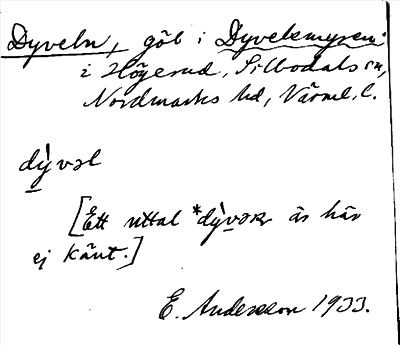 Dyveln, göl i Dyvelsmyren
i Högerud, Silbodals sn,
Nordmarks hd, Värml. l.
dỳvəl
[Ett uttal *dỳvəɽ är här
ej känt.]
E. Andersson 1933.